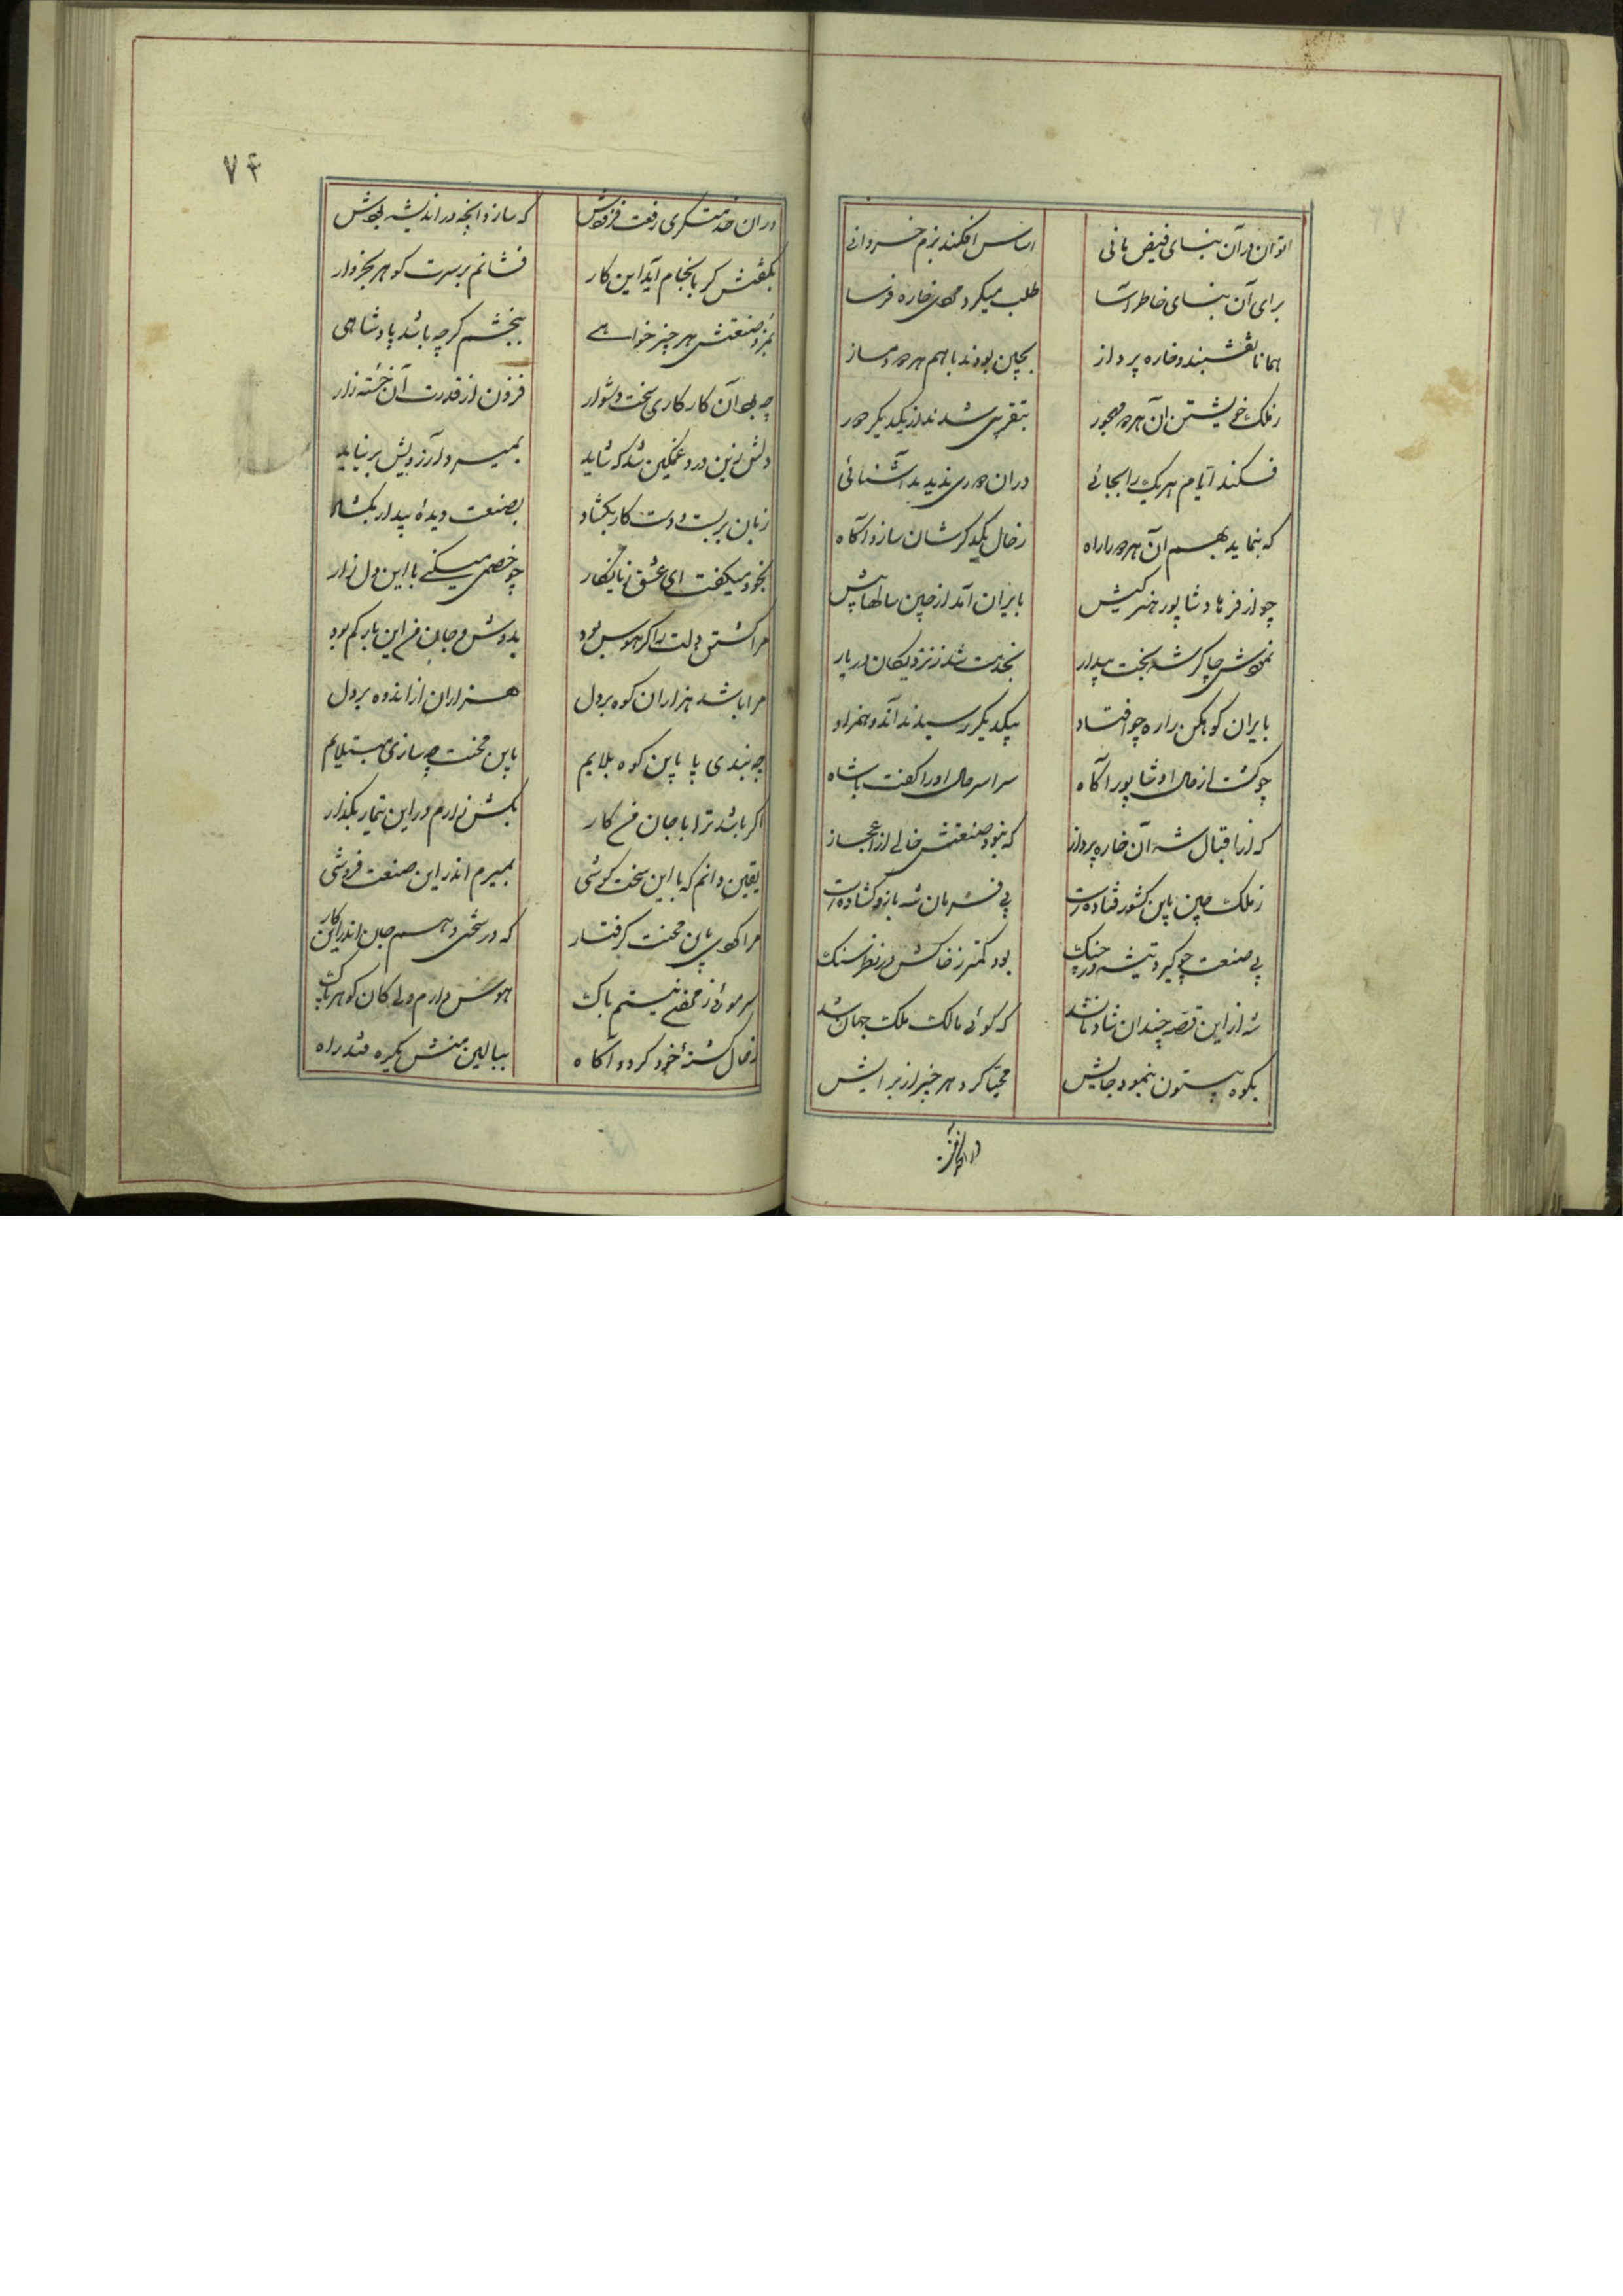 توان در آن بنای فیض بانی
اساس افکند بزم خسروانی
برای آن بنای خاطر آسا
طلب میکرد مردی خاره فرسا
همانا نقشبند و خاره پرداز
بچین بودند باهم هر دو دمساز
ز ملک خویشتن آن هر دو مهجور
بتقریبی شدند از یکدیگر دور
فکند ایام هر یک را بجائی
در آن دوری ندید آشنائی
که بنماید بهم آن هر دو را راه
ز حال یکدگرشان سازد آگاه
چو از فرهاد شاپور هنر کیش
بایران آمد از چین سالها پیش
نمودش چاکر شه بخت بیدار
بخدمت شد ز نزدیکان دربار
بایران کوهکن را ره چو افتاد
بیکدیگر رسیدند آن دو همزاد
چو گشت از حال او شاپور آگاه
سراسر حال او را گفت با شاه
که از اقبال شه آن خاره پرداز
که نبود صنعتش خالی از اعجاز
ز ملک چین باین کشور فتاده است
پی فرمان شه بازو گشاده است
پی صنعت چو گیرد تیشه در چنگ
بود کمتر ز خاکش در نظر سنگ
شه از این قصه چندان شادمان شد
که گوئی مالک ملک جهان شد
بکوه بیستون بنمود جایش
مهیا کرد هر چیز از برایش
۷۴
در آن خدمتگری رفعت فزودش
که سازد آنچه در اندیشه بودش
بگفتش گر بانجام آید این کار
فشانم بر سرت گوهر بخروار
بمزد صنعتش هر چیز خواهی
ببخشم گرچه باشد پادشاهی
چه بود آن کار کاری سخت و دشوار
فزون از قدرت آن خسته زار
دلش زین درد غمگین شد که شاید
بمیرد و آرزویش برنیاید
زبان بر بست و دست کار بگشاد
بصنعت دیدهٔ بیدار بگشاد
بخود میگفت ای عشق زیانکار
چو خصمی میکنی با این دل زار
مرا کشتن دلت را گر هوس بود
بدوش و جان من این بار کم بود
مرا باشد هزاران کوه بر دل
هزاران از اندوه بر دل
چه بندی پا باین کوه بلایم
باین محنت چه سازی مبتلایم
اگر باشد ترا با جان من کار
بکش زارم در این تیمار بگذار
یقین دانم که با این سخت کوشی
بمیرم اندر این صنعت فروشی
مرا کردی باین محنت گرفتار
که در سختی دهم جان اندر این کار
سر موئی ز نیستم باک
هوس دارم ولی کان گوهر پاک
ز حال کشتهٔ خود گردد آگاه
ببالین منش یکره فتد راه